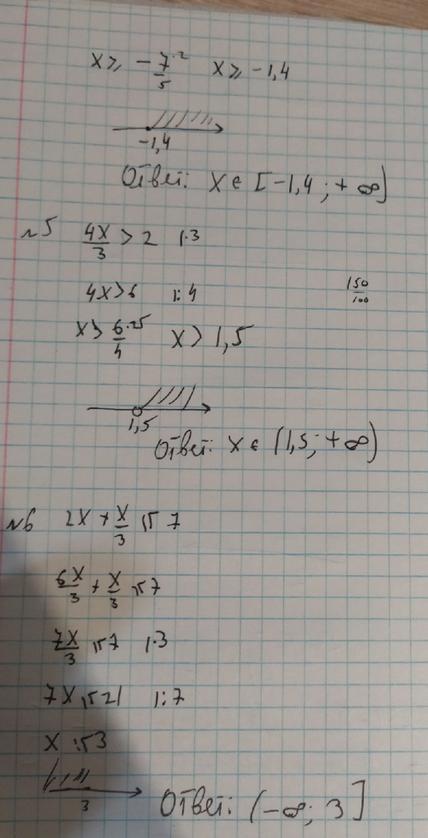 x ≥ -7·2/5 x ≥ -1,4
-1,4
Ответ: x ∈ [-1,4 ; + ∞)
№5 4x/3 > 2 |·3
4x > 6 |:4
150/100
x > 6·25/4 x > 1,5
1,5
Ответ: x ∈ (1,5; + ∞)
№6 2x + x/3 ≤ 7
6x/3 + x/3 ≤ 7
7x/3 ≤ 7 |·3
7x ≤ 21 |:7
x ≤ 3
3
Ответ: (-∞; 3]